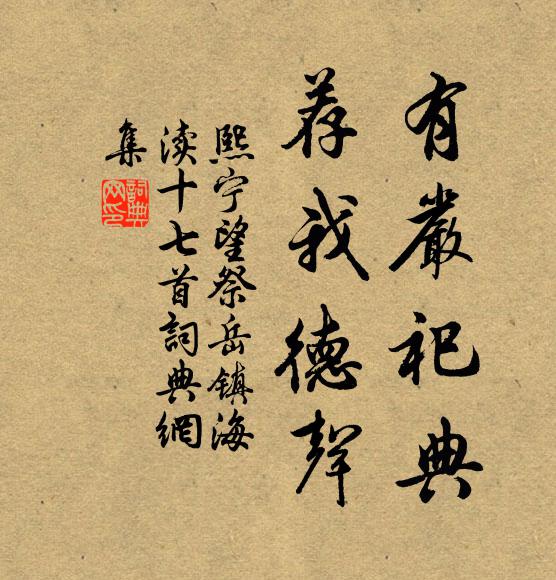 有嚴祀典
荐我德聲
熙宁望祭岳鎮海
渎十七首詞典網
集
詞典網印